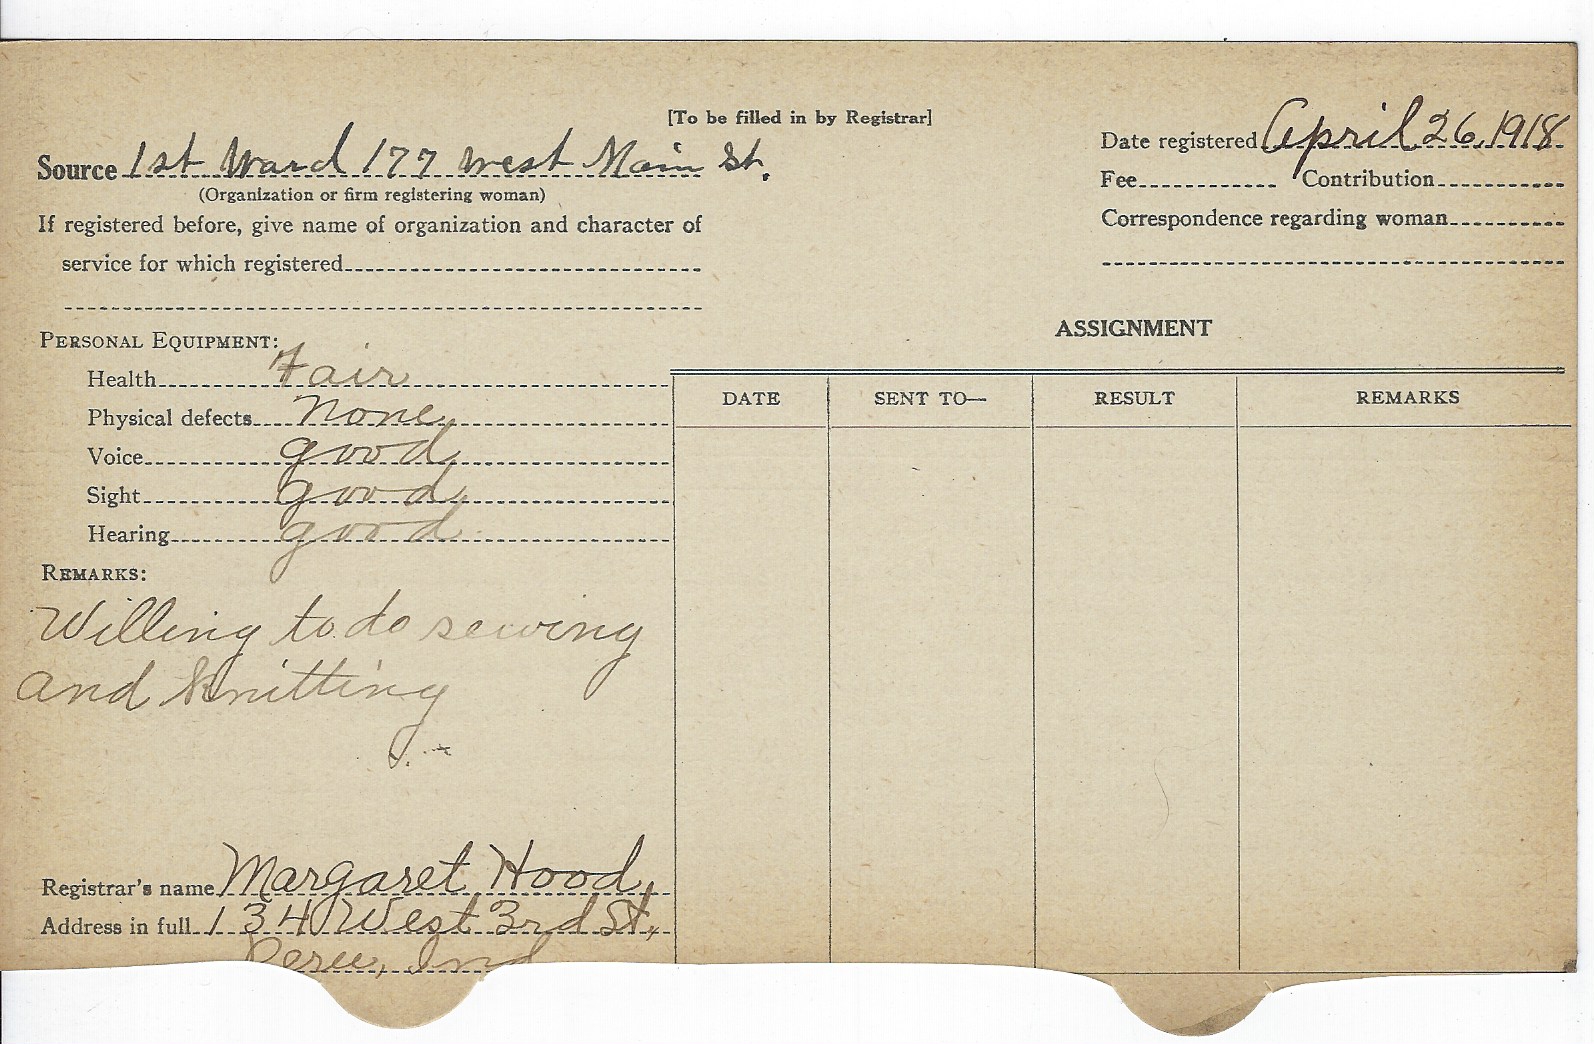 [To be filled in by Registrar]
Source 1st Ward 177 West Main St.
(Organization or firm registering woman)
If registered before, give name of organization and character of
service for which registered
Date registered April 26, 1918
Fee Contribution
Correspondence regarding woman
PERSONAL EQUIPMENT:
Health Fair
Physical defects None
Voice good
Sight good
Hearing good
REMARKS:
Willing to do sewing
and knitting
Registrar's name Margaret Hood,
Address in full 134 West 3rd St,
Peru, Ind
ASSIGNMENT
DATE SENT TO— RESULT REMARKS